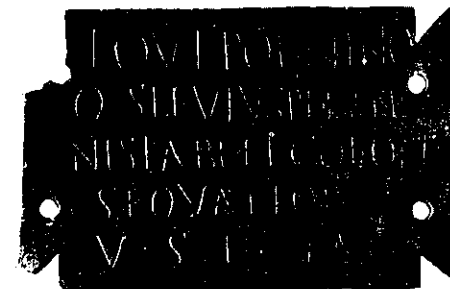 IOVI POENINO
Q SILVIVS PEREN
NIS TABELL COLON
SEQVANOR
V · S · L · M